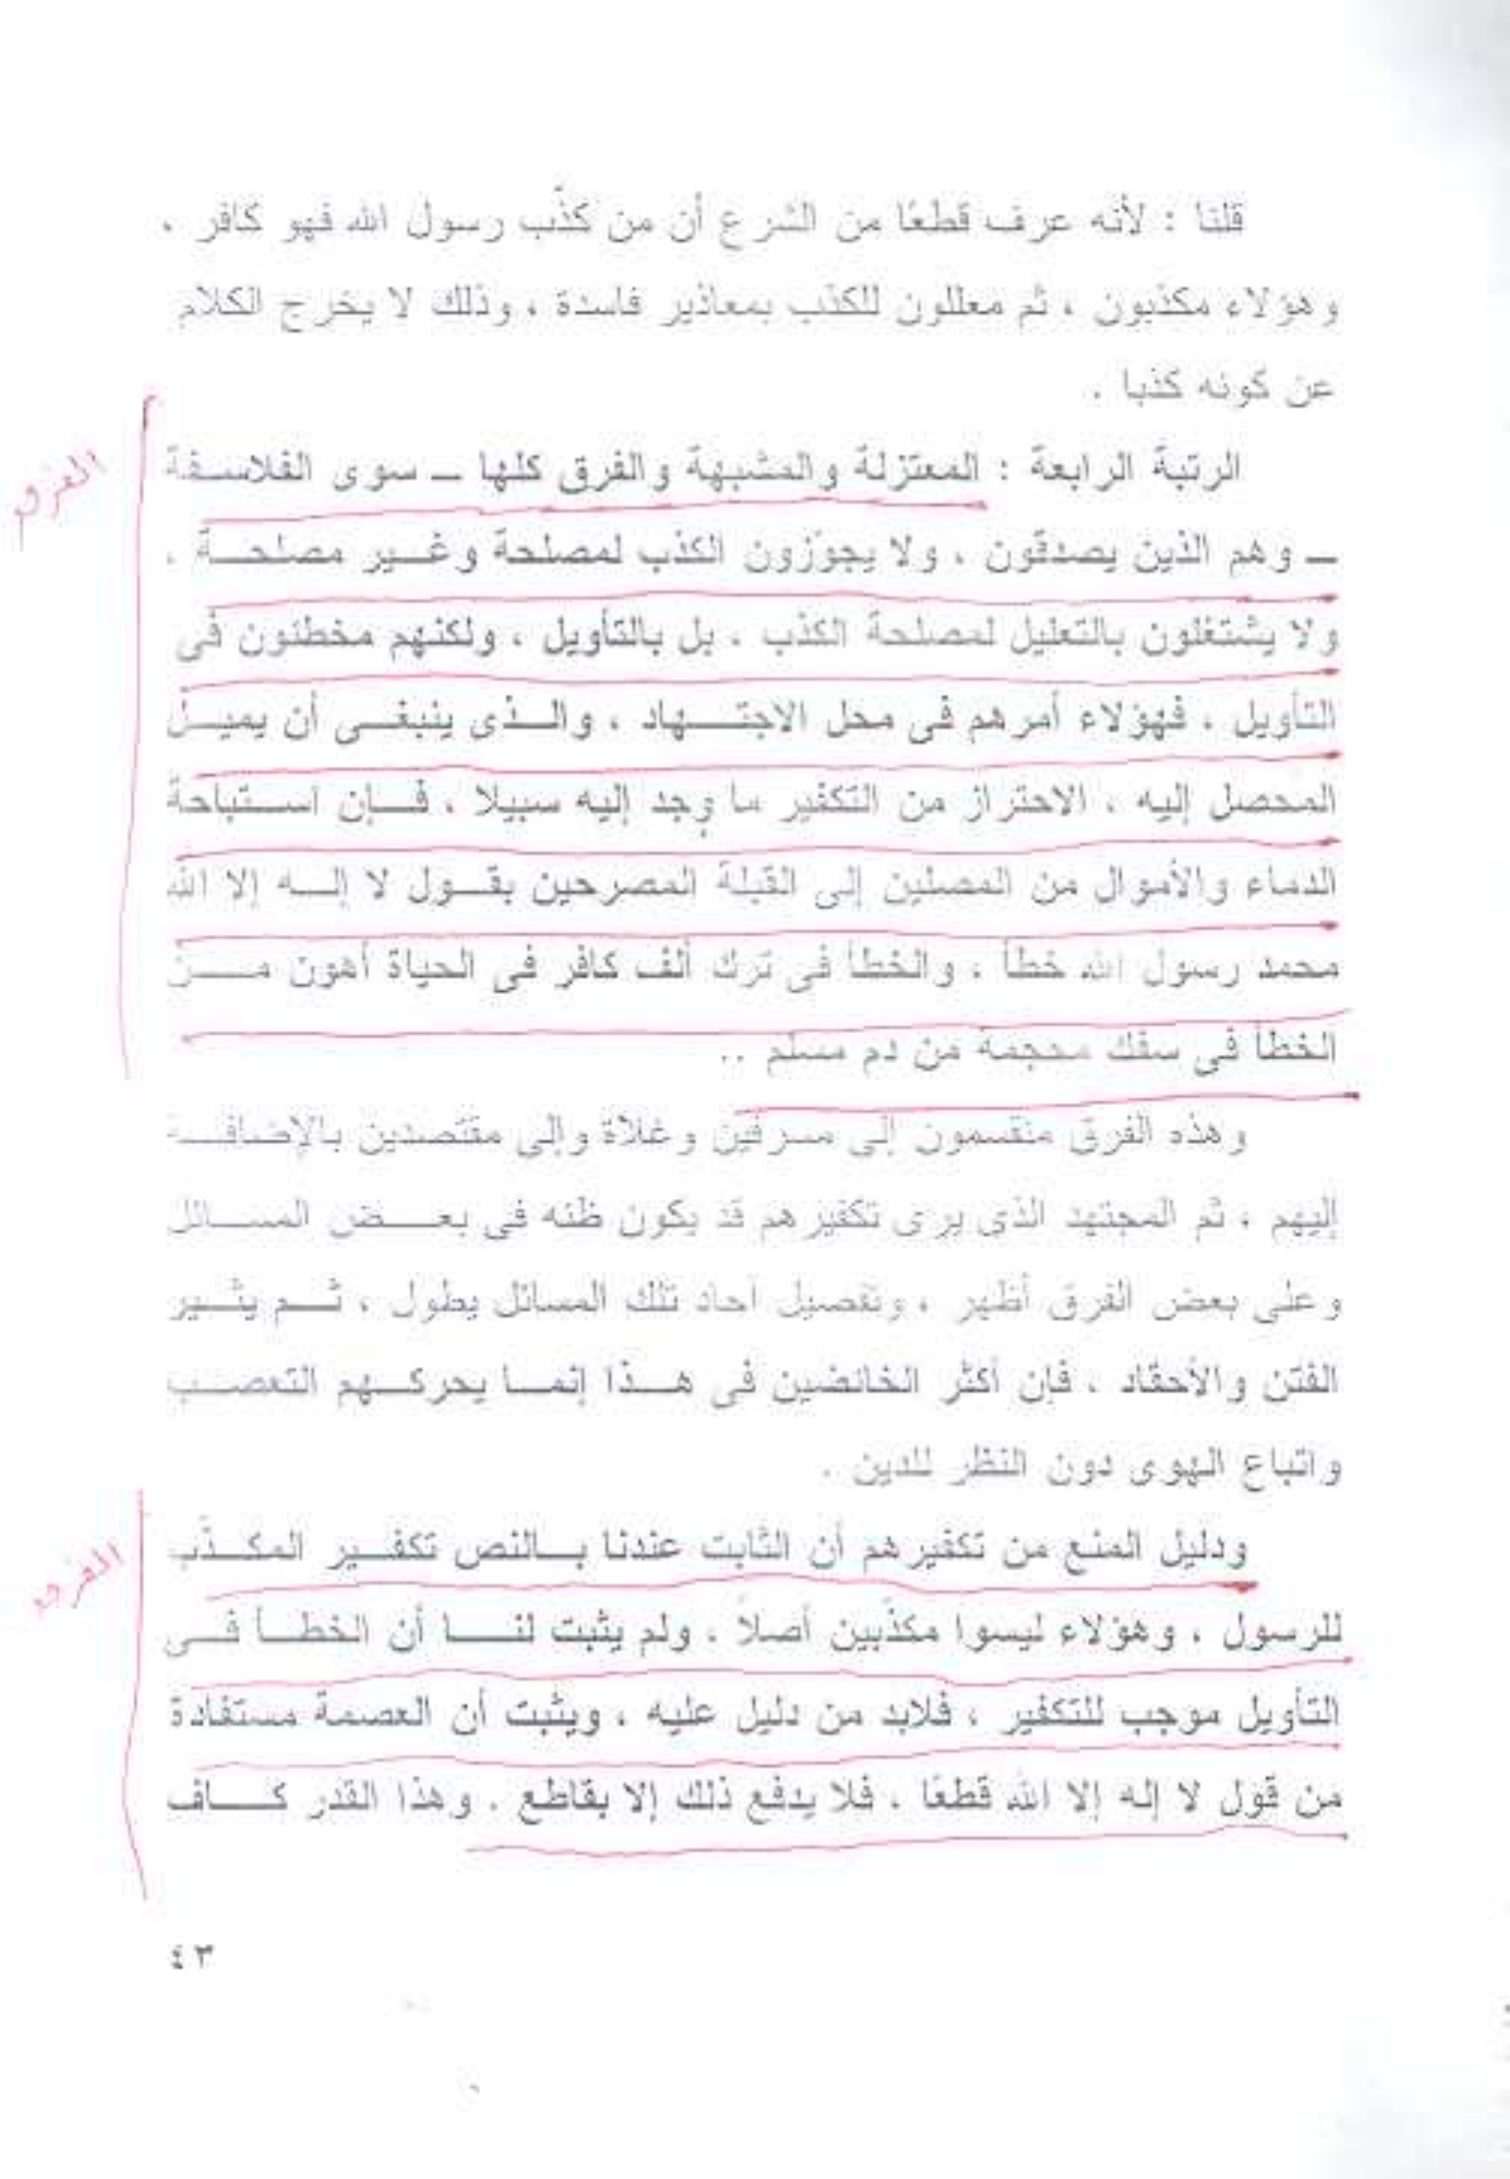 قلنا : لأنه عرف قطعًا من الشرع أن من كذّب رسول الله فهو كافر ،
وهؤلاء مكذبون ، ثم معللون للكذب بمعاذير فاسدة ، وذلك لا يخرج الكلام
عن كونه كذبا .
الرتبة الرابعة : المعتزلة والمشبهة والفرق كلها ــ سوى الفلاسفة
الفرق
ــ وهم الذين يصدقون ، ولا يجوّزون الكذب لمصلحة وغير مصلحة ،
ولا يشتغلون بالتعليل لمصلحة الكذب ، بل بالتأويل ، ولكنهم مخطئون فى
التأويل ، فهؤلاء أمرهم فى محل الاجتهاد ، والذى ينبغى أن يميل
المحصل إليه ، الاحتراز من التكفير ما وجد إليه سبيلا ، فإن استباحة
الدماء والأموال من المصلين إلى القبلة المصرحين بقول لا إله إلا الله
محمد رسول الله خطأ ، والخطأ فى ترك ألف كافر فى الحياة أهون من
الخطأ فى سفك محجمة من دم مسلم ..
وهذه الفرق منقسمون إلى مسرفين وغلاة وإلى مقتصدين بالإضافة
إليهم ، ثم المجتهد الذى يرى تكفيرهم قد يكون ظنه فى بعض المسائل
وعلى بعض الفرق أظهر ، وتفصيل آحاد تلك المسائل يطول ، ثم يثير
الفتن والأحقاد ، فإن أكثر الخائضين فى هذا إنما يحركهم التعصب
واتباع الهوى دون النظر للدين .
ودليل المنع من تكفيرهم أن الثابت عندنا بالنص تكفير المكذّب
الفرق
للرسول ، وهؤلاء ليسوا مكذّبين أصلاً ، ولم يثبت لنا أن الخطأ فى
التأويل موجب للتكفير ، فلابد من دليل عليه ، ويثبت أن العصمة مستفادة
من قول لا إله إلا الله قطعًا ، فلا يدفع ذلك إلا بقاطع . وهذا القدر كاف
٤٣